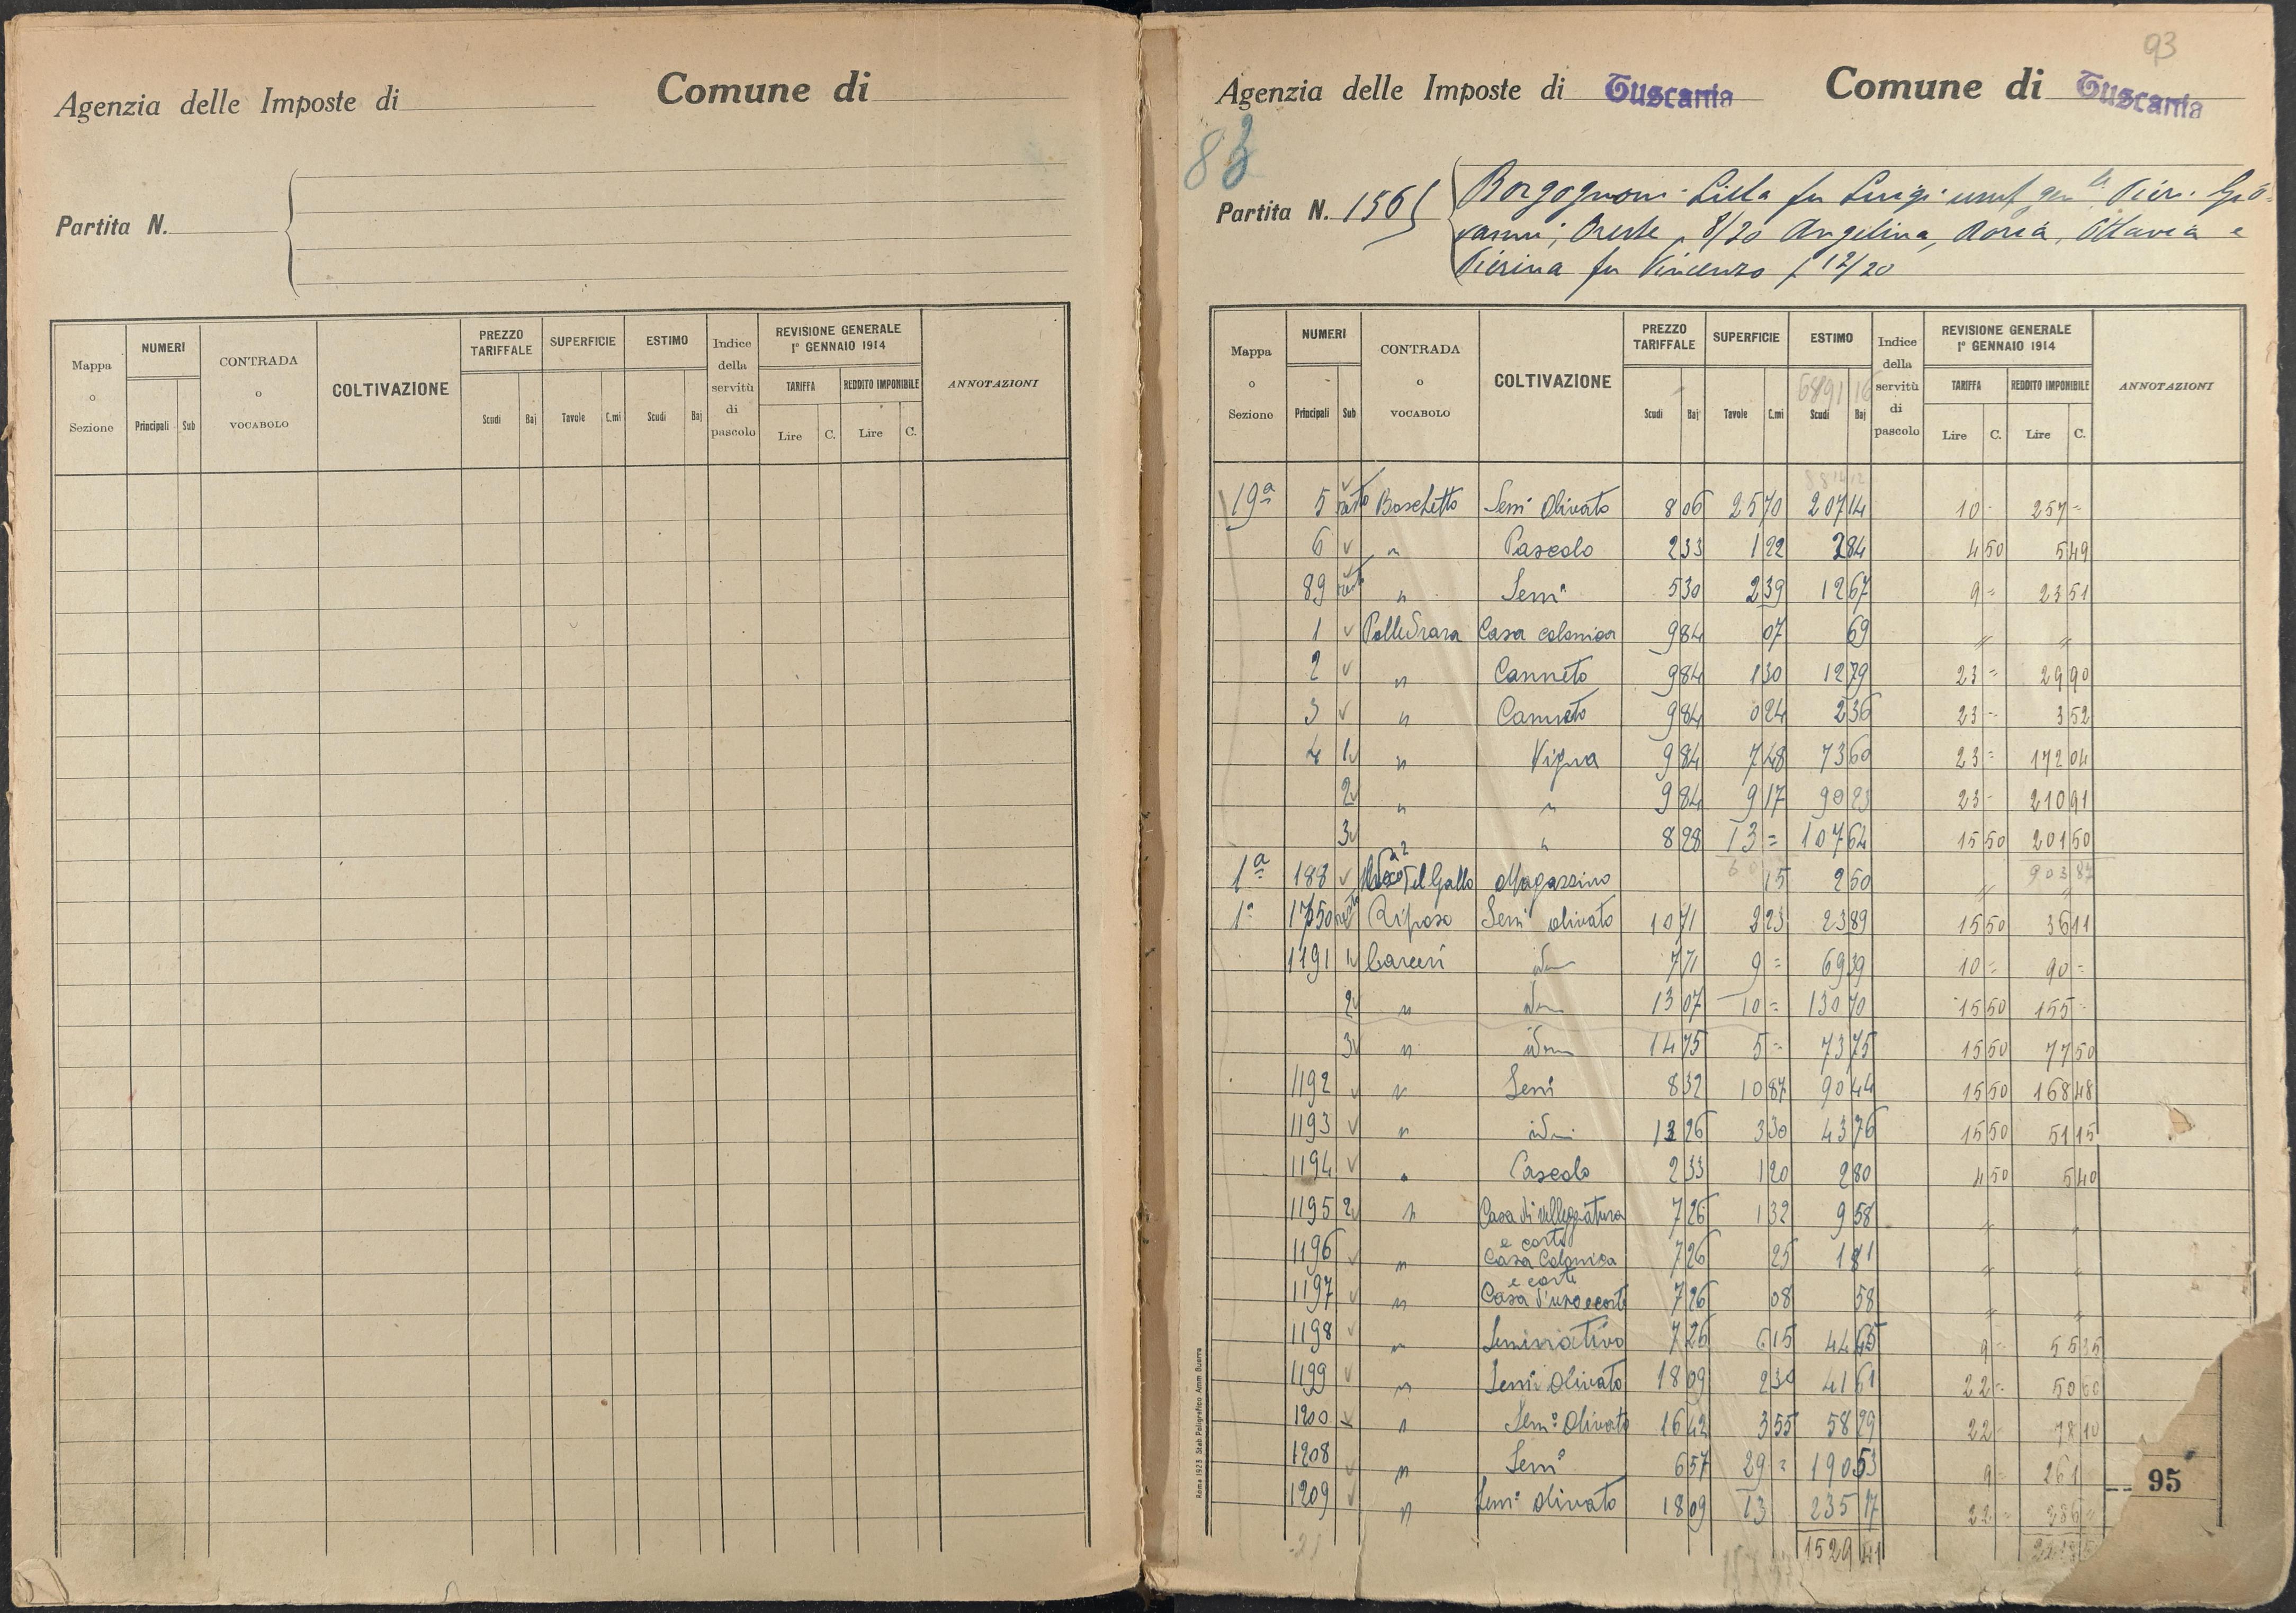 Agenzia delle Imposte di
Comune di
Partita N.
Mappa o Sezione
NUMERI
Principali Sub
CONTRADA o VOCABOLO
COLTIVAZIONE
PREZZO TARIFFALE
Scudi Baj
SUPERFICIE
Tavole C.mi
ESTIMO
Scudi Baj
Indice della servitù di pascolo
REVISIONE GENERALE
1° GENNAIO 1914
TARIFFA REDDITO IMPONIBILE
Lire C. Lire C.
ANNOTAZIONI
93
Agenzia delle Imposte di Tuscania
Comune di Tuscania
83
Partita N. 1565
Borgognoni Lilla fu Luigi usuf gen le Pieri Gio-
vanni, Oreste, 8/20 Angelina, Maria, Ottavia e
Pierina fu Vincenzo 12/20
Mappa o Sezione
NUMERI
Principali Sub
CONTRADA o VOCABOLO
COLTIVAZIONE
PREZZO TARIFFALE
Scudi Baj
SUPERFICIE
Tavole C.mi
ESTIMO
6891 16
Scudi Baj
Indice della servitù di pascolo
REVISIONE GENERALE
1° GENNAIO 1914
TARIFFA REDDITO IMPONIBILE
Lire C. Lire C.
ANNOTAZIONI
19ª 5 rato Boschetto Semi Olivato 8 06 25 70 207 14 10 - 257 =
6 v " Pascolo 2 33 1 22 2 84 4 50 5 49
89 " Semo 5 30 2 39 12 67 9 = 23 51
1 v Polledrara Casa colonica 9 84 07 69 " "
2 v " Canneto 9 84 1 30 12 79 23 = 29 90
3 v " Canneto 9 84 0 24 2 36 23 = 3 52
4 1v " Vigna 9 84 7 48 73 60 23 = 172 04
2v " " 9 84 9 17 90 23 23 - 210 91
3v " 8 28 13 = 107 64 15 50 201 50
903 87
1ª 188 v del Gallo Magazzino 15 2 50 " "
1ª 1750 Riposo Semi olivato 10 71 2 23 23 89 15 50 36 11
1191 1v Carceri idem 7 71 9 = 69 39 10 = 90 =
2v " idem 13 07 10 = 130 70 15 50 155 -
3v " idem 14 75 5 = 73 75 15 50 77 50
1192 v " Semi 8 32 10 87 90 44 15 50 168 48
1193 v " idem 13 26 3 30 43 76 15 50 51 15
1194 v " Pascolo 2 33 1 20 2 80 4 50 5 40
1195 2v " Casa di villeggiatura e corte 7 26 1 32 9 58 " "
1196 v " Casa Colonica e corte 7 26 25 1 81 " "
1197 v " Casa d'uso e corte 7 26 08 58 " "
1198 v " Seminativo 7 26 6 15 44 65 9 = 55 35
1199 v " Semi Olivato 18 09 2 30 41 61 22 = 50 60
1200 v " Semo Olivato 16 42 3 55 58 29 22 - 78 10
1208 v " Semo 6 57 29 = 190 53 9 = 261
1209 v " Semo olivato 18 09 13 235 17 22 = 286 =
1529 41
95
Roma 1923 Stab. Poligrafico Amm Guerra